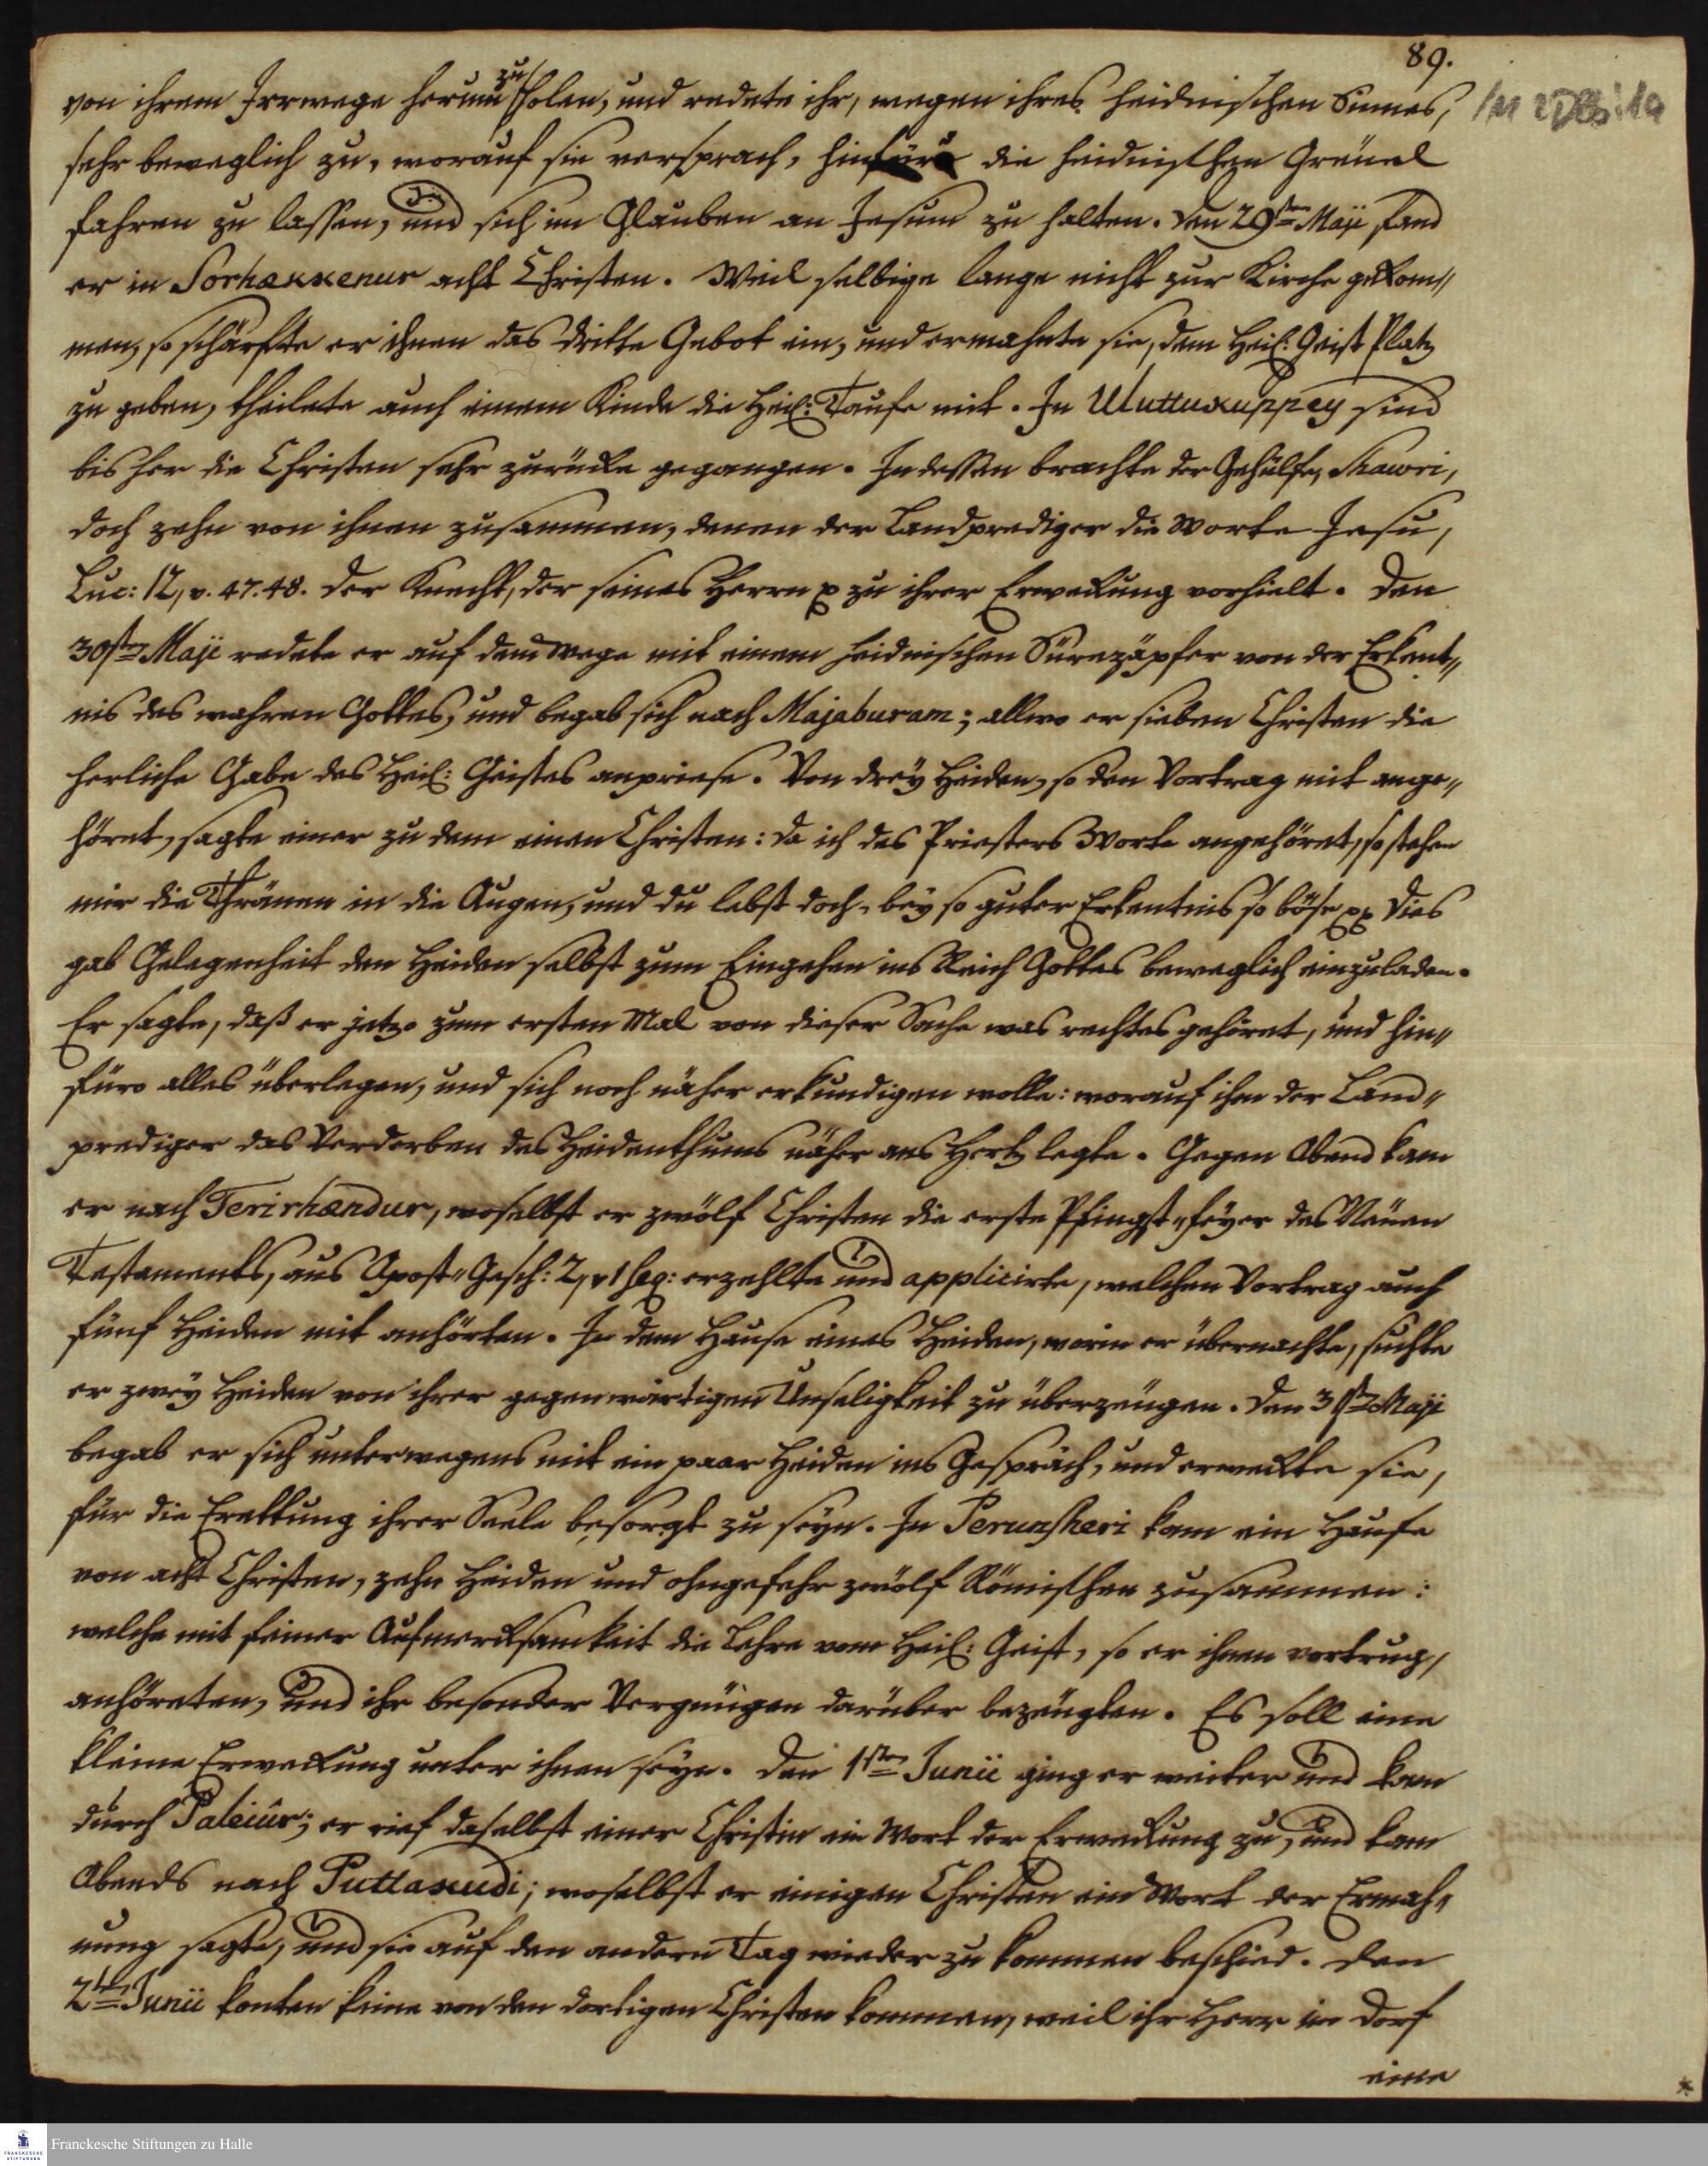 89.
von ihrem Irrwege herum zu holen, und redete ihr, wegen ihres heidnischen Sinnes,
sehr beweglich zu, worauf sie versprach, hinfüro die heidnischen Greuel
fahren zu lassen, und sich im Glauben an Jesum zu halten. Den 29sten Maji fand
er in Sorhaxxenur acht Christen. Weil selbige lange nicht zur Kirche gekom"
men, so schärfte er ihnen das dritte Gebot ein, und ermahnte sie, dem Heil: Geist Platz
zu geben, theilete auch einem Kinde die Heil: Taufe mit. In Uluttuxuppey sind
bisher die Christen sehr zurücke gegangen. Indessen brachte der Gehülfe, Shawri,
doch zehn von ihnen zusammen, denen der Landprediger die Worte Jesu,
Luc: 12, v. 47.48. Der Knecht, der seines Herrn p zu ihrer Erweckung vorhielt. Den
30sten Maji redete er auf dem Wege mit einem heidnischen Sürezäpfer von der Erkent"
nis des wahren Gottes, und begab sich nach Majaburam; allwo er sieben Christen die
herliche Gabe des Heil: Geistes anpriese. Von drey Heiden, so den Vortrag mit ange"
höret, sagte einer zu dem einen Christen: da ich des Priesters Worte angehöret, so stehen
mir die Thränen in die Augen, und du lebst doch, bey so guter Erkentnis so böse pp Dies
gab Gelegenheit den Heiden selbst zum Eingehen ins Reich Gottes beweglich einzuladen.
Er sagte, daß er jetzo zum ersten Mal von dieser Sache was rechtes gehöret, und hin"
füro alles überlegen, und sich noch näher erkundigen wolle: worauf ihm der Land"
prediger das Verderben des Heidenthums näher ans Hertz legte. Gegen Abend kam
er nach Terirhaendur, woselbst er zwölf Christen die erste Pfingst"feyer des Neuen
Testaments, aus Apost"Gesch: 2, v 1 seq: erzehlte und applicirte, welchen Vortrag auch
fünf Heiden mit anhörten. In dem Hause eines Heiden, worin er übernachte, suchte
er zwey Heiden von ihrer gegenwärtigen Unseligkeit zu überzeugen. Den 31sten Maji
begab er sich unterwegens mit ein paar Heiden ins Gespräch, und erweckte sie,
für die Erettung ihrer Seele besorgt zu seyn. In Perunsheri kam ein Haufe
von acht Christen, zehn Heiden und ohngefehr zwölf Römischen zusammen:
welche mit feiner Aufmercksamkeit die Lehre vom Heil: Geist, so er ihnen vortrug,
anhöreten, und ihr besonder Vergnügen darüber bezeugten. Es soll eine
kleine Erweckung unter ihnen seyn. Den 1sten Junii ging er weiter und kam
durch Paleiûr; er rief daselbst einer Christin ein Wort der Erweckung zu, und kam
Abends nach Puttaxudi; woselbst er einigen Christen ein Wort der Ermah"
nung sagte, und sie auf den andern Tag wieder zu kommen beschied. Den
2ten Junii konten keine von den dortigen Christen kommen, weil ihr Herr im Dorf
eine
Franckesche Stiftungen zu Halle